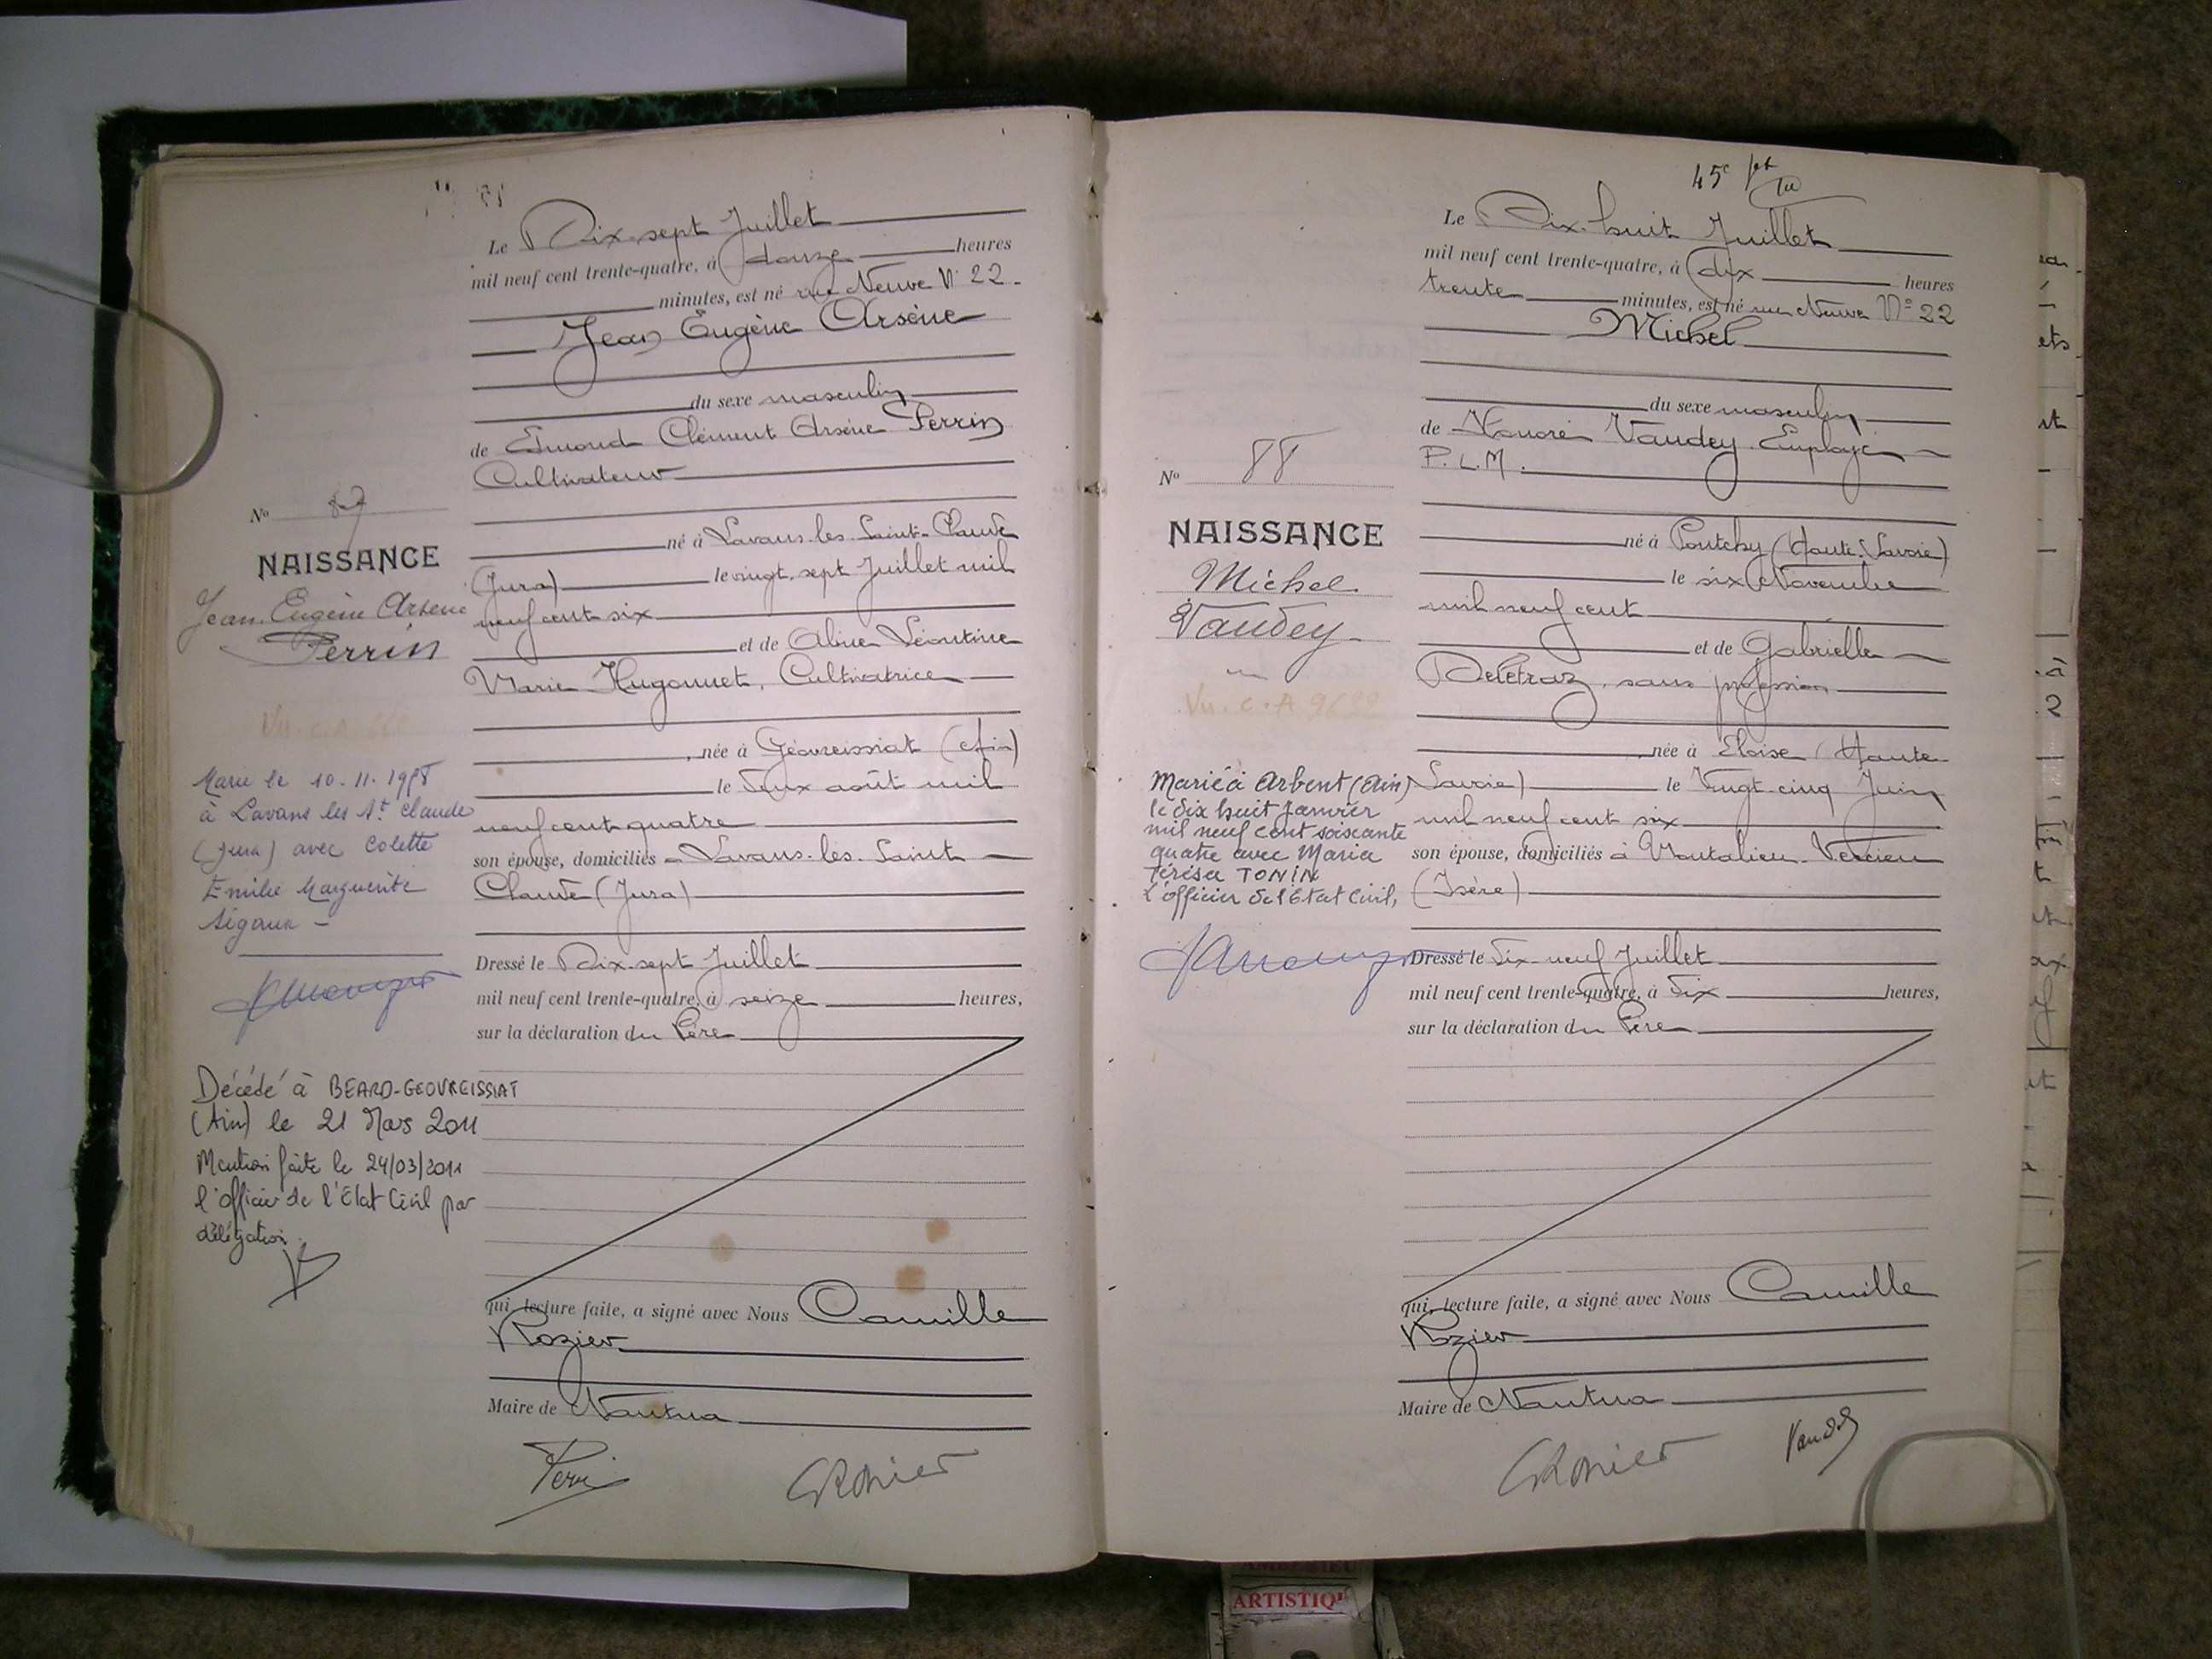 Le Dix-sept Juillet
mil neuf cent trente-quatre, à douze heures
minutes, est né rue Neuve N° 22
Jean Eugène Arsène
du sexe masculin
de Edmond Clément Arsène Perrin
Cultivateur
né à Lavans-les-Saint-Claude
(Jura) le vingt-sept Juillet mil
neuf cent six
et de Aline Léontine
Marie Hugonnet, Cultivatrice
, née à Géovreissiat (Ain)
le deux août mil
neuf cent quatre
son épouse, domiciliés à Lavans-les-Saint
Claude (Jura)
Dressé le Dix-sept Juillet
mil neuf cent trente-quatre, à seize heures,
sur la déclaration du Père
qui, lecture faite, a signé avec Nous Camille
Rozier
Maire de Nantua
N° 87
NAISSANCE
Jean Eugène Arsène
Perrin
Vu. C.A
Marié le 10-11-1958
à Lavans les St Claude
(Jura) avec Colette
Emilie Marguerite
Décédé à BEARD-GEOVREISSIAT
(Ain) le 21 Mars 2011
Mention faite le 24/03/2011
l'officier de l'Etat Civil par
délégation
45e
Le Dix-huit Juillet
mil neuf cent trente-quatre, à dix heures
trente minutes, est né rue Neuve N° 22
Michel
du sexe masculin
de Honoré Vaudey Employé
P.L.M.
né à Pontchy (Haute-Savoie)
le six Novembre
mil neuf cent
et de Gabrielle
Delétraz, sans profession
, née à Eloise (Haute
Savoie) le Vingt-cinq Juin
mil neuf cent six
son épouse, domiciliés à Montalieu-Vercieu
(Isère)
Dressé le Dix-neuf Juillet
mil neuf cent trente-quatre, à Dix heures,
sur la déclaration du Père
qui, lecture faite, a signé avec Nous Camille
Rozier
Maire de Nantua
Vaudey
N° 88
NAISSANCE
Michel
Vaudey
Vu. C.A
Marié à Arbent (Ain)
le dix huit Janvier
mil neuf cent soixante
quatre avec Maria
Térésa TONIN
L'officier de l'Etat Civil,
ARTISTIQ